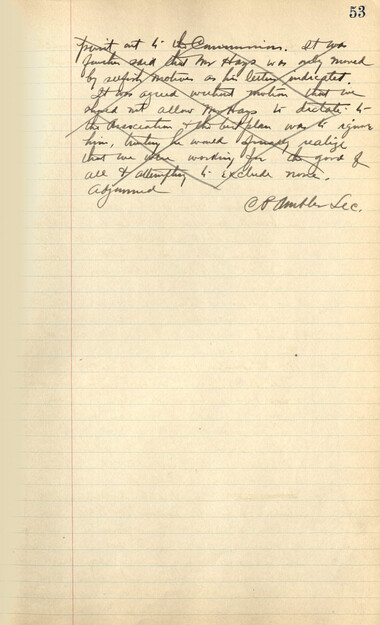 53
point out to the Commission. It was
further said that Mr Hays was only moved
by selfish motives as his letter indicated.
It was agreed without motion that we
should not allow Mr Hays to dictate to
the Association & the best plan was to ignore
him, trusting he would finally realize
that we were working for the good of
all & attempting to exclude none.
Adjourned
C P Ambler Sec.